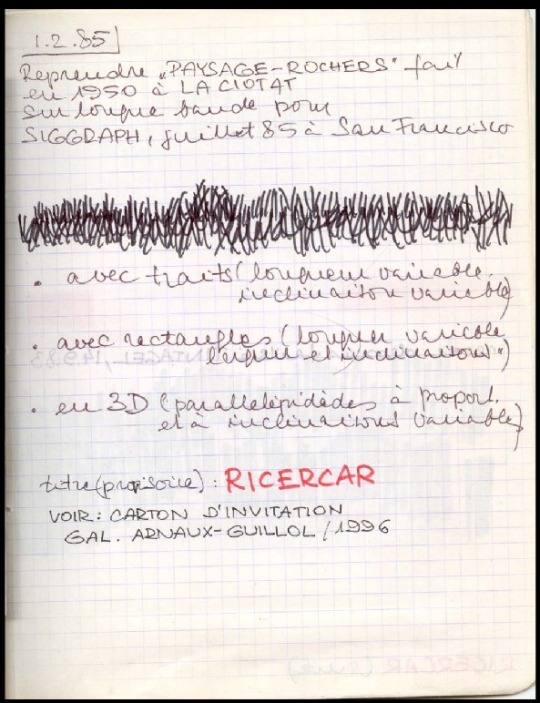 1.2.85
Reprendre „PAYSAGE-ROCHERS" fait
en 1950 à LA CIOTAT
sur longue bande pour
SIGGRAPH, juillet 85 à San Francisco
• avec traits (longueur variable,
inclinaison variable)
• avec rectangles (longueur variable
largeur et inclinaisons")
• en 3D (parallélépipèdes à proport.
et à inclinaisons variable)
titre (provisoire) : RICERCAR
VOIR: CARTON D'INVITATION
GAL. ARNAUX-GUILLOL / 1996
RICERCAR (suite)